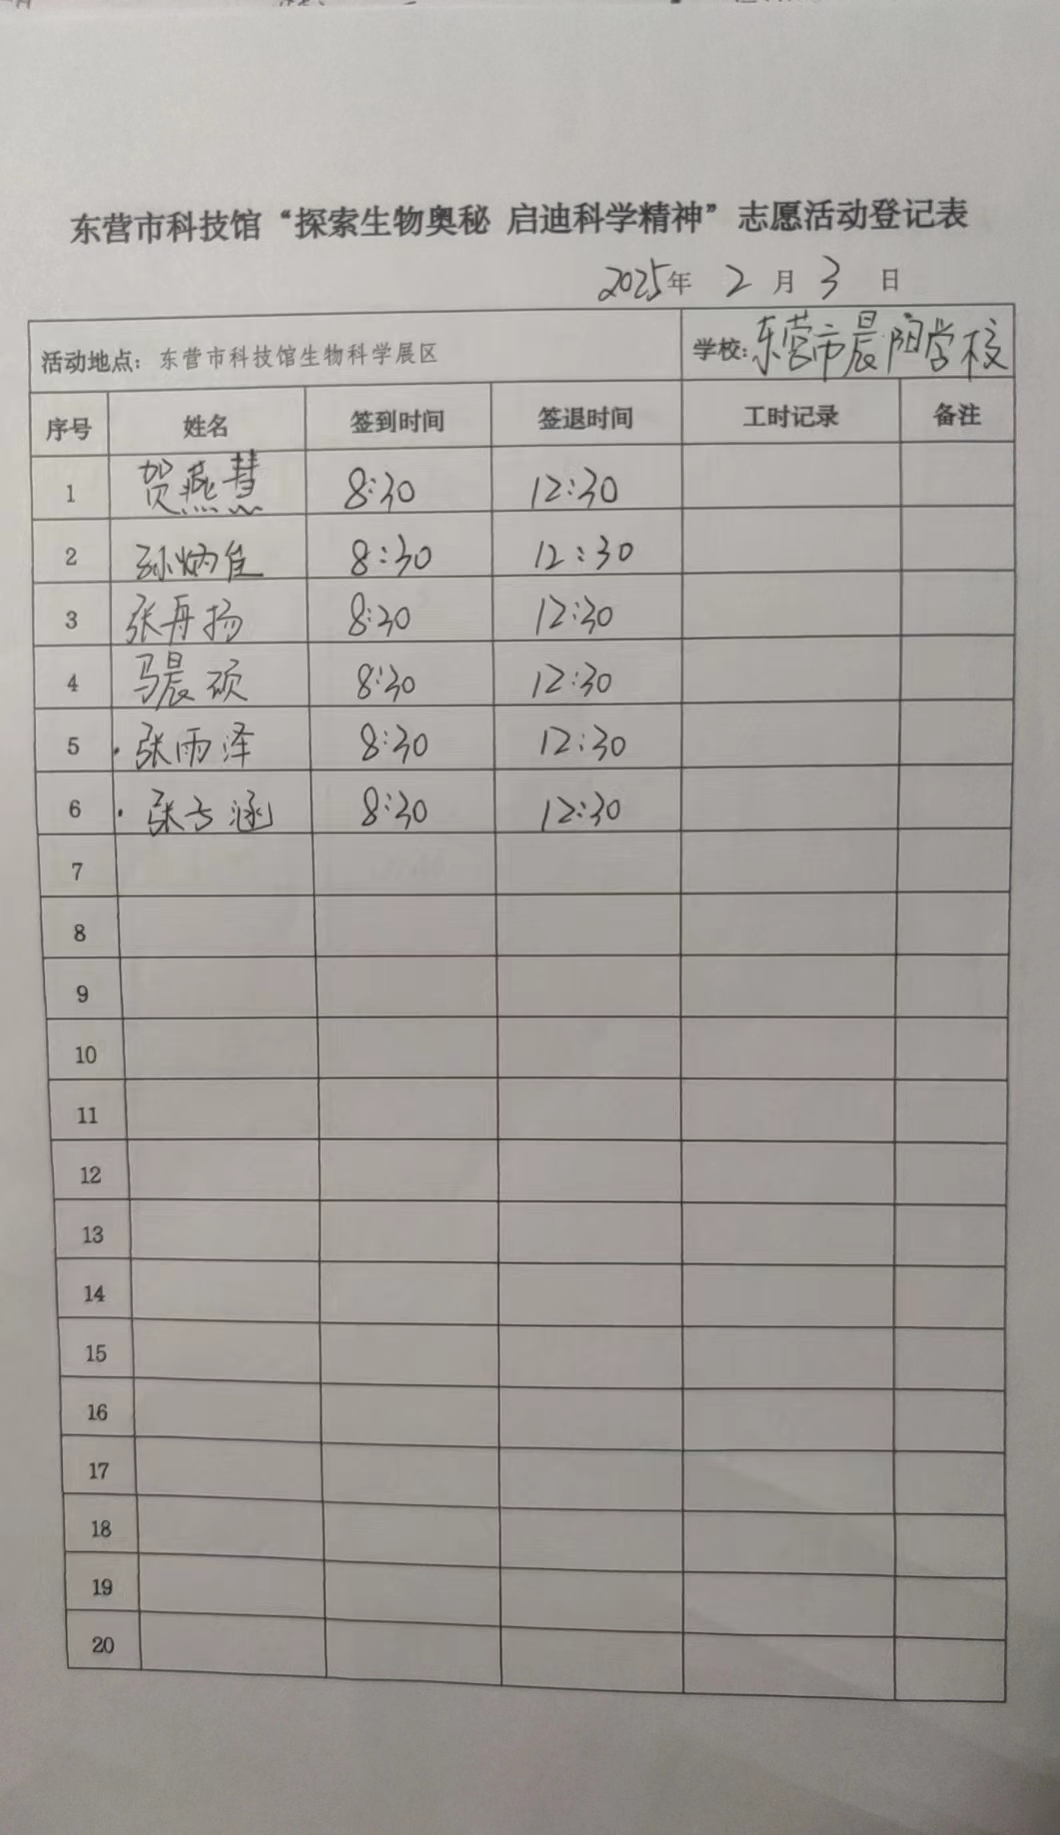 东营市科技馆“探索生物奥秘 启迪科学精神”志愿活动登记表
2025年 2 月 3 日
活动地点：东营市科技馆生物科学展区 学校：东营市晨阳学校
序号 姓名 签到时间 签退时间 工时记录 备注
1 贺燕慧 8:30 12:30
2 孙炳佳 8:30 12:30
3 张再扬 8:30 12:30
4 马晨硕 8:30 12:30
5 张雨泽 8:30 12:30
6 张涵 8:30 12:30
7
8
9
10
11
12
13
14
15
16
17
18
19
20